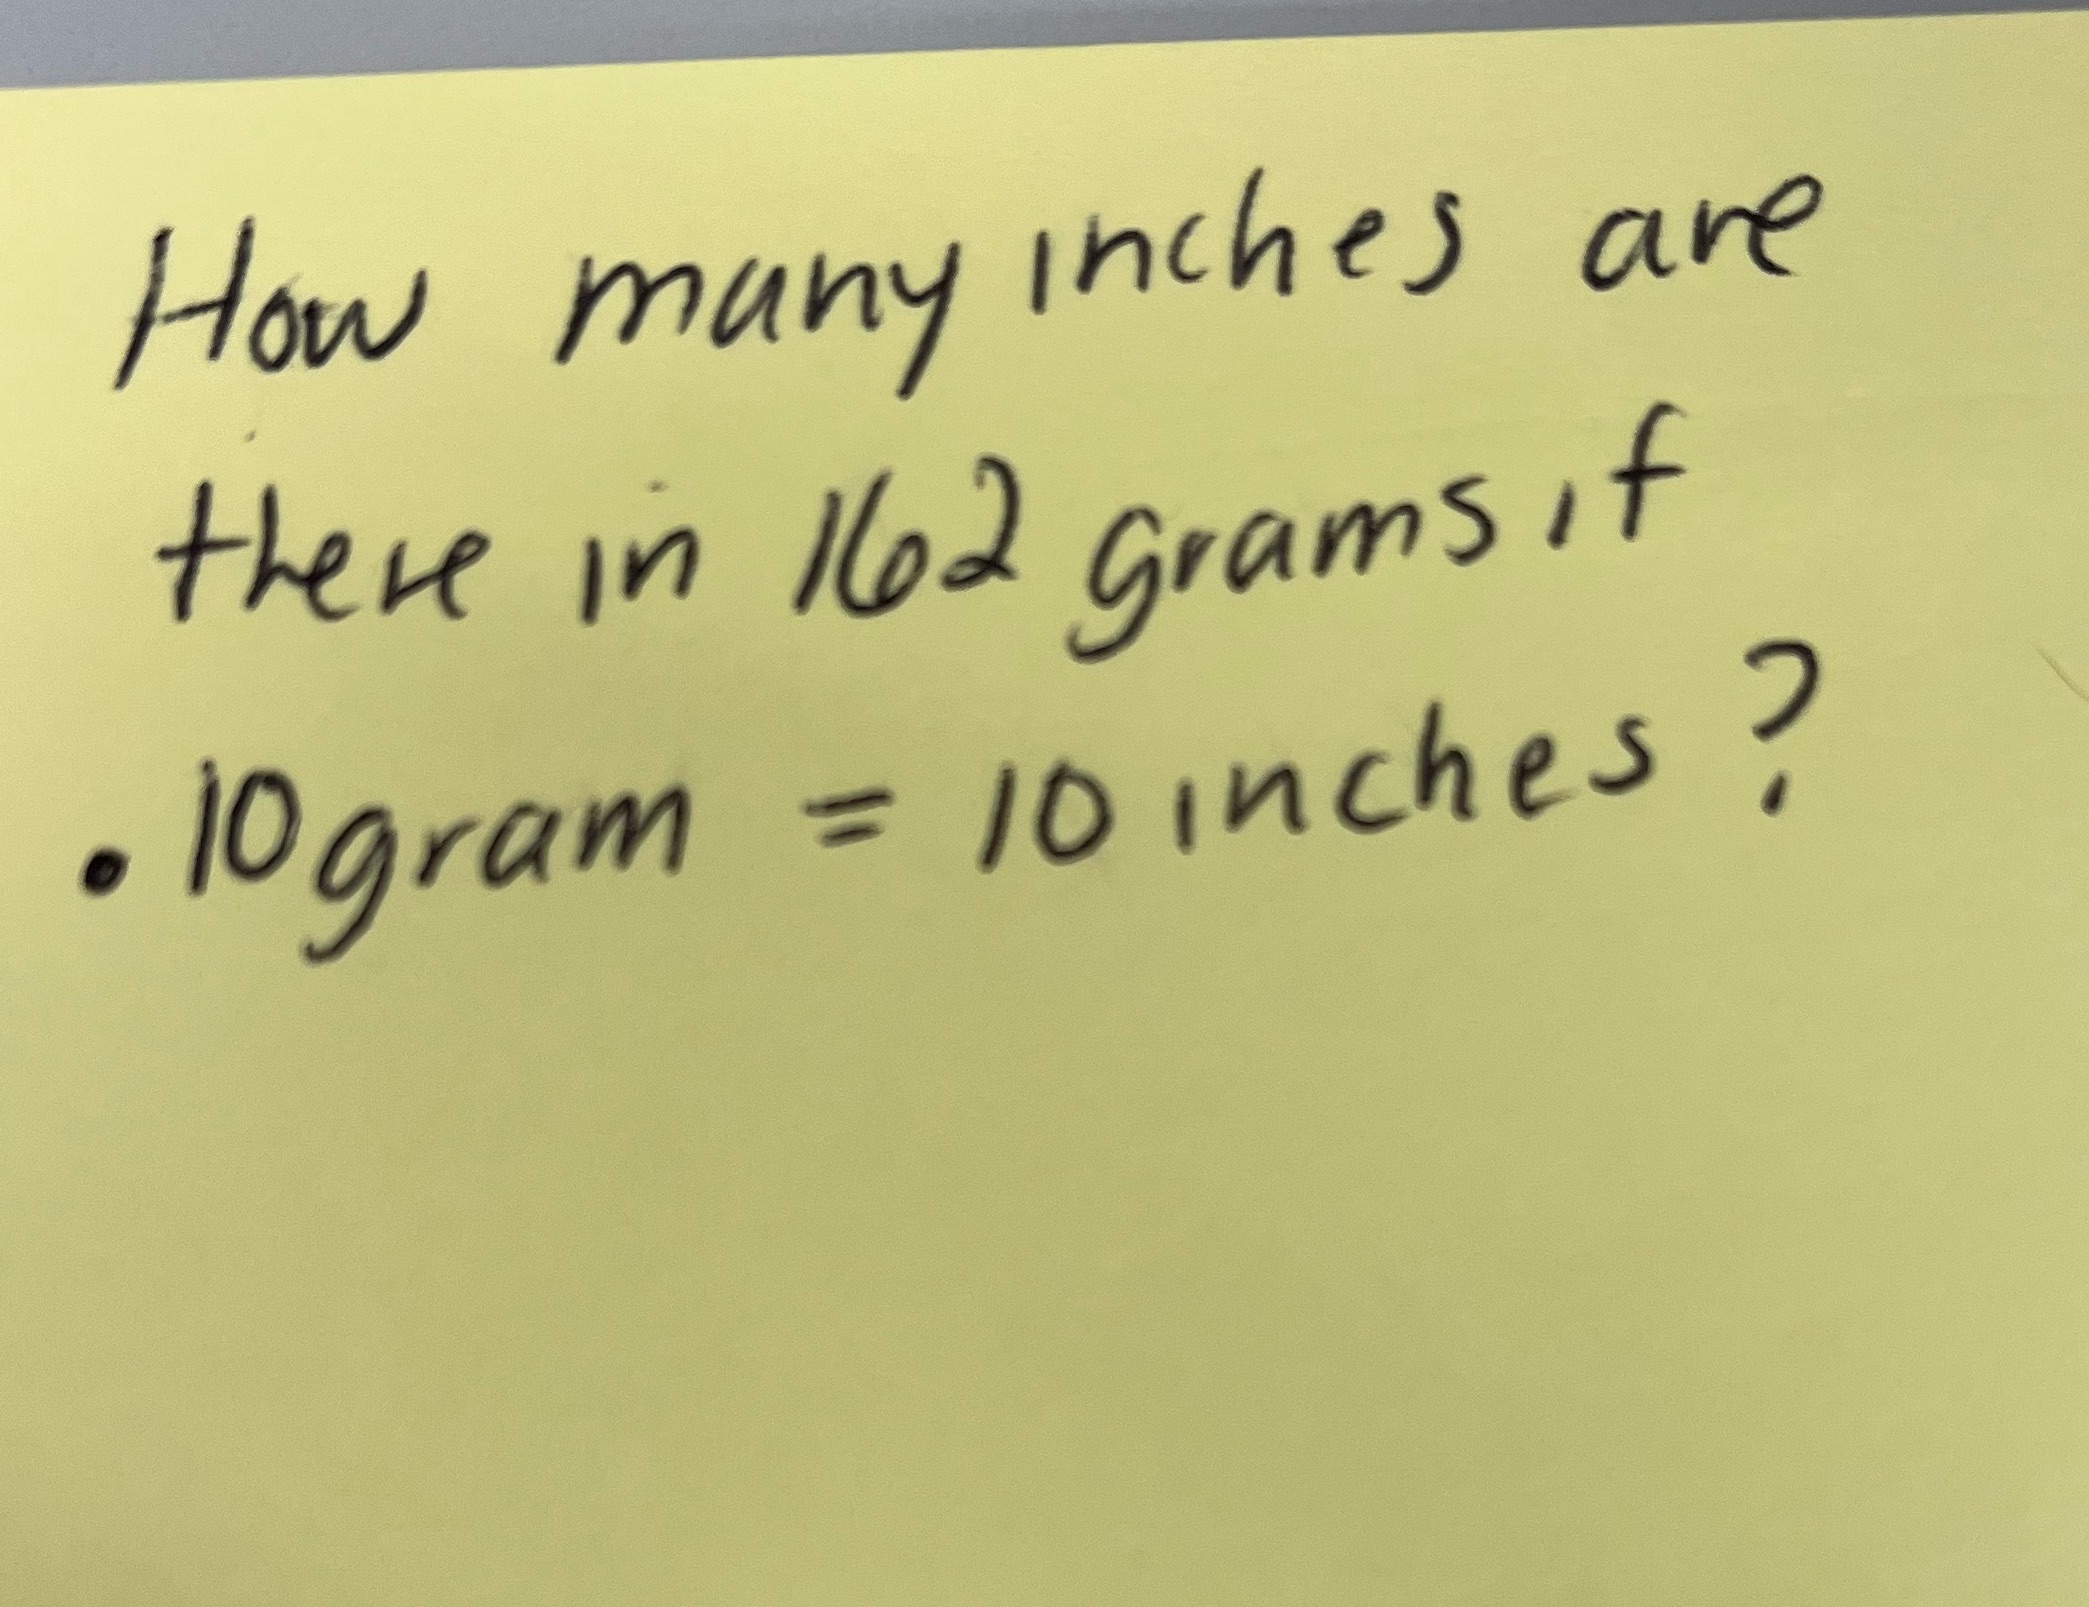 How many inches are
there in 162 grams if
.10gram = 10 inches?